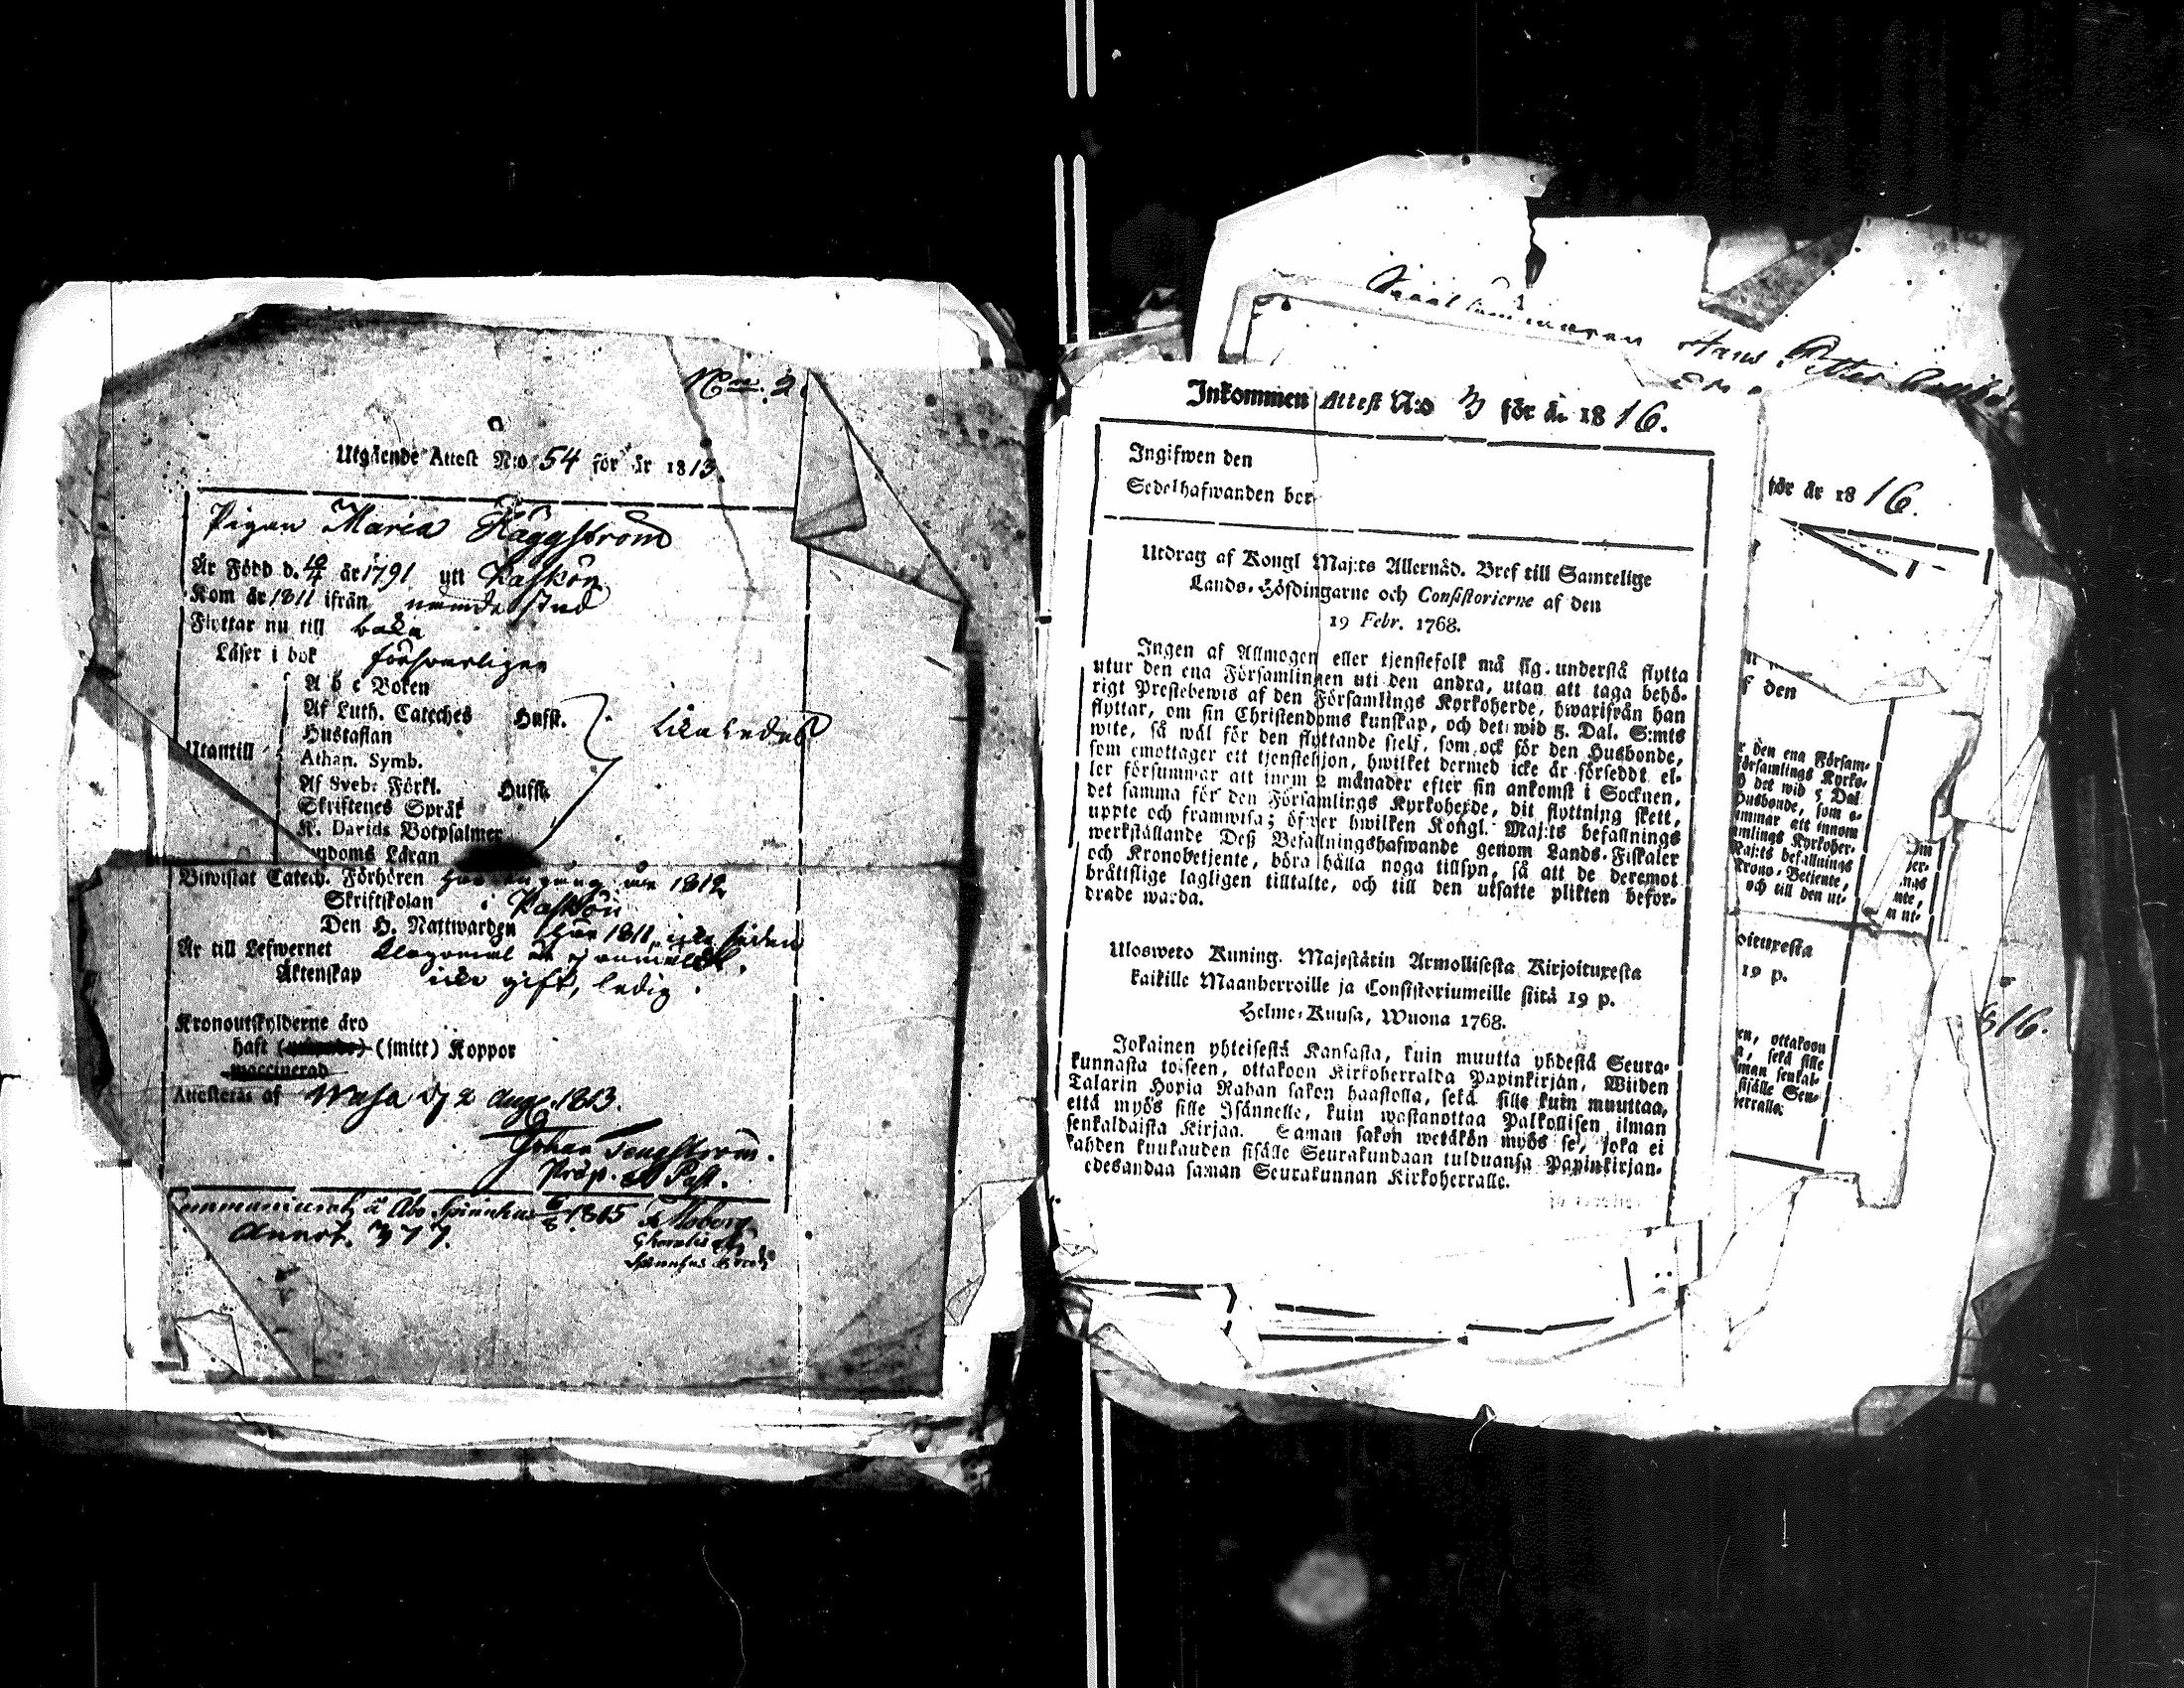 No. 2
Utgående Attest N:o 54 för år 1813.
Pigan Maria Häggström
Är Född d. 10/4 år 1791 uti Kaskön
Kom år 1811 ifrån nämde stad
Flyttar nu till
Läser i bok försvarligen
A b c Boken
Af Luth. Cateches Hufst.
Hustaflan
Utantill
Athan. Symb.
Af Sveb. Förkl. Hufst.
Skriftenes Språk
K. Davids Botpsalmer
ndoms Läran
likaledes
Biwistat Catech. Förhören en gång 1812
Skriftskolan i Kaskön
Den H. Nattwarden 1811, icke sedan
Är till Lefwernet
Äktenskap icke gift, ledig.
Kronoutskylderne äro
haft (smitt) Koppor
waccinerad
Attesteras af Wasa d. 2 Aug. 1813.
Johan Tengström.
Präp. et Past.
Communicerat å Åbo Spinnhus 6/8 1815
Annot. 377.
Inkommen Attest N:o 3 för år 1816.
Ingifwen den
Sedelhafwanden bor
Utdrag af Kongl Maj:ts Allernåd. Bref till Samtelige
Lands-Höfdingarne och Consistorierne af den
19 Febr. 1768.
Ingen af Allmogen eller tjenstefolk må sig understå flytta
utur den ena Församlingen uti den andra, utan att taga behö-
rigt Prestebewis af den Församlings Kyrkoherde, hwarifrån han
flyttar, om sin Christendoms kunskap, och det wid 5. Dal. S:mts
wite, så wäl för den flyttande sielf, som ock för den Husbonde,
som emottager ett tjenstehjon, hwilket dermed icke är försedt el-
ler försummar att inom 2 månader efter sin ankomst i Socknen,
det samma för den Församlings Kyrkoherde, dit flyttning skett,
uppte och framwisa; öfwer hwilken Kongl. Maj:ts befallnings
werkställande Deß Befallningshafwande genom Lands-Fiskaler
och Kronobetjente, böra hålla noga tillsyn, så att de deremot
bråttslige lagligen tilltalte, och till den utsatte plikten befor-
drade warda.
Ulosweto Kuning. Majestätin Armollisesta Kirjoituxesta
kaikille Maanherroille ja Consistoriumeille siitä 19 p.
Helme-Kuusa, Wuona 1768.
Jokainen yhteisestä Kansasta, kuin muutta yhdestä Seura-
kunnasta toiseen, ottakoon Kirkoherralda Papinkirjan, Wiiden
Talarin Hopia Rahan sakon haastolla, sekä sille kuin muuttaa,
että myös sille Isännelle, kuin wastanottaa Palkollisen ilman
senkaldaista Kirjaa. Saman sakon wetäkön myös se, joka ei
kahden kuukauden sisälle Seurakundaan tulduansa Papinkirjan-
edesandaa saman Seurakunnan Kirkoherralle.
för år 1816.
f den
r den ena Försam-
Församlings Kyrko-
det wid 5 Dal
Husbonde, som e-
ummar att innom
amlings Kyrkoher-
Maj:ts befallnings
Krono-Betjente,
och till den ut-
oituxesta
19 p.
en, ottakoon
a, sekä sille
lman senkal-
sisälle Seu-
herralle.
816.